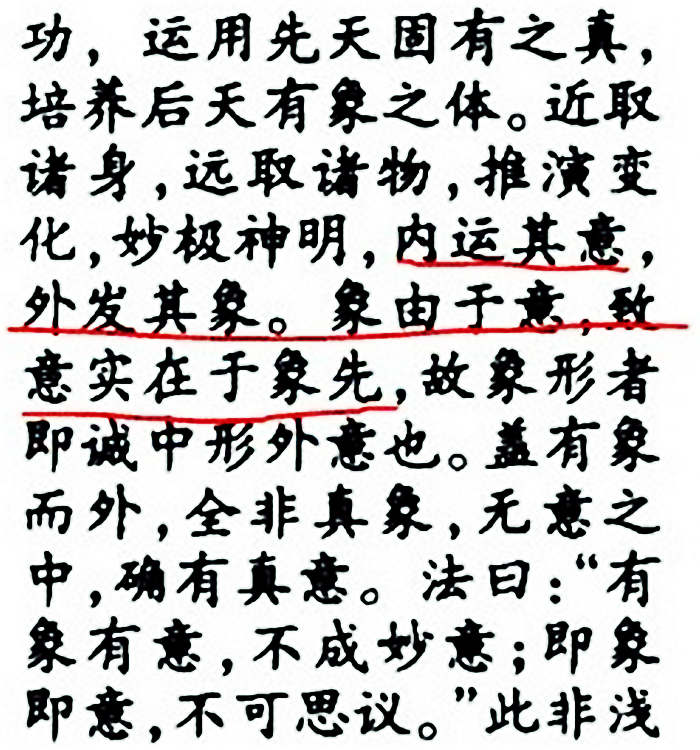 功，运用先天固有之真，
培养后天有象之体。近取
诸身，远取诸物，推演变
化，妙极神明，内运其意，
外发其象。象由于意，致
意实在于象先，故象形者
即诚中形外意也。盖有象
而外，全非真象，无意之
中，确有真意。法曰：“有
象有意，不成妙意；即象
即意，不可思议。”此非浅